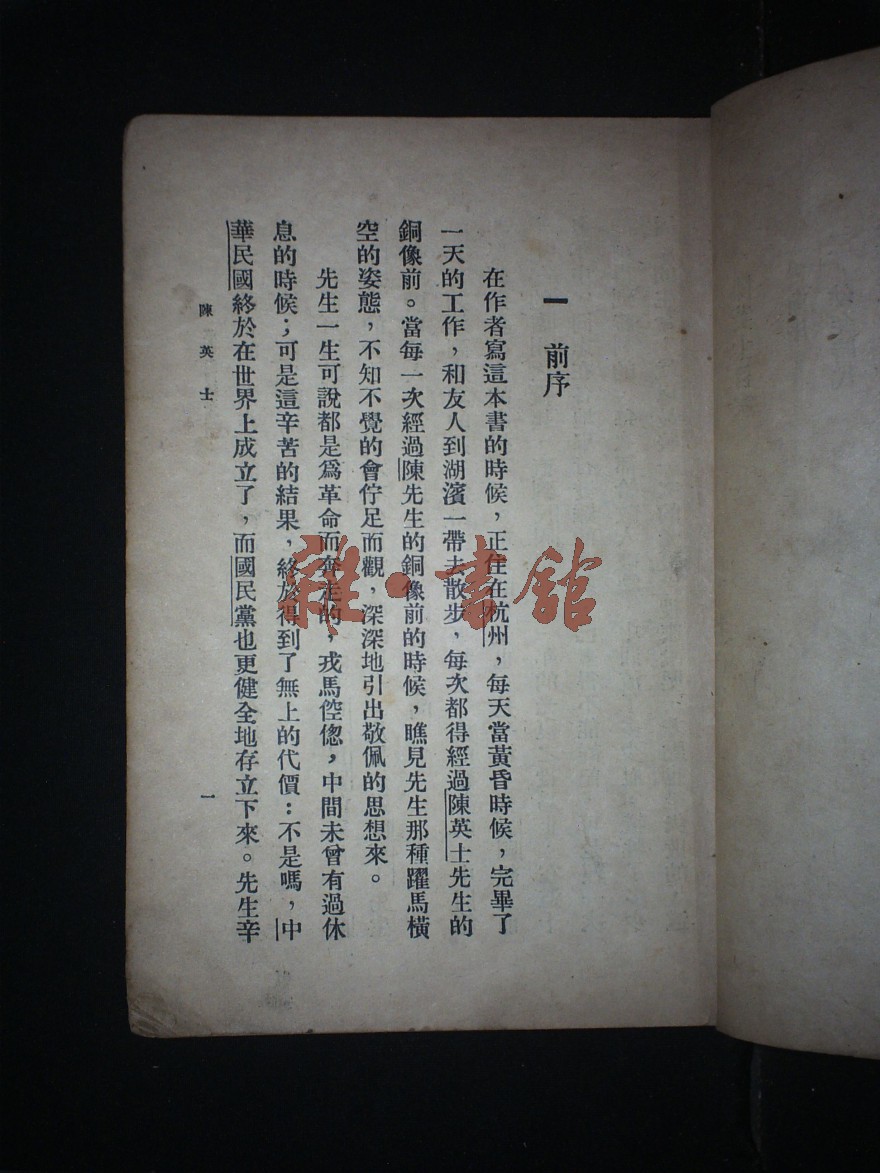 一　前序
在作者寫這本書的時候，正住在杭州，每天當黃昏時候，完畢了
一天的工作，和友人到湖濱一帶去散步，每次都得經過陳英士先生的
銅像前。當每一次經過陳先生的銅像前的時候，瞧見先生那種躍馬橫
空的姿態，不知不覺的會佇足而觀，深深地引出敬佩的思想來。
先生一生可說都是爲革命而奔走的，戎馬倥偬，中間未曾有過休
息的時候；可是這辛苦的結果，終於得到了無上的代價：不是嗎，中
華民國終於在世界上成立了，而國民黨也更健全地存立下來。先生辛
陳英士
一
雜·書館